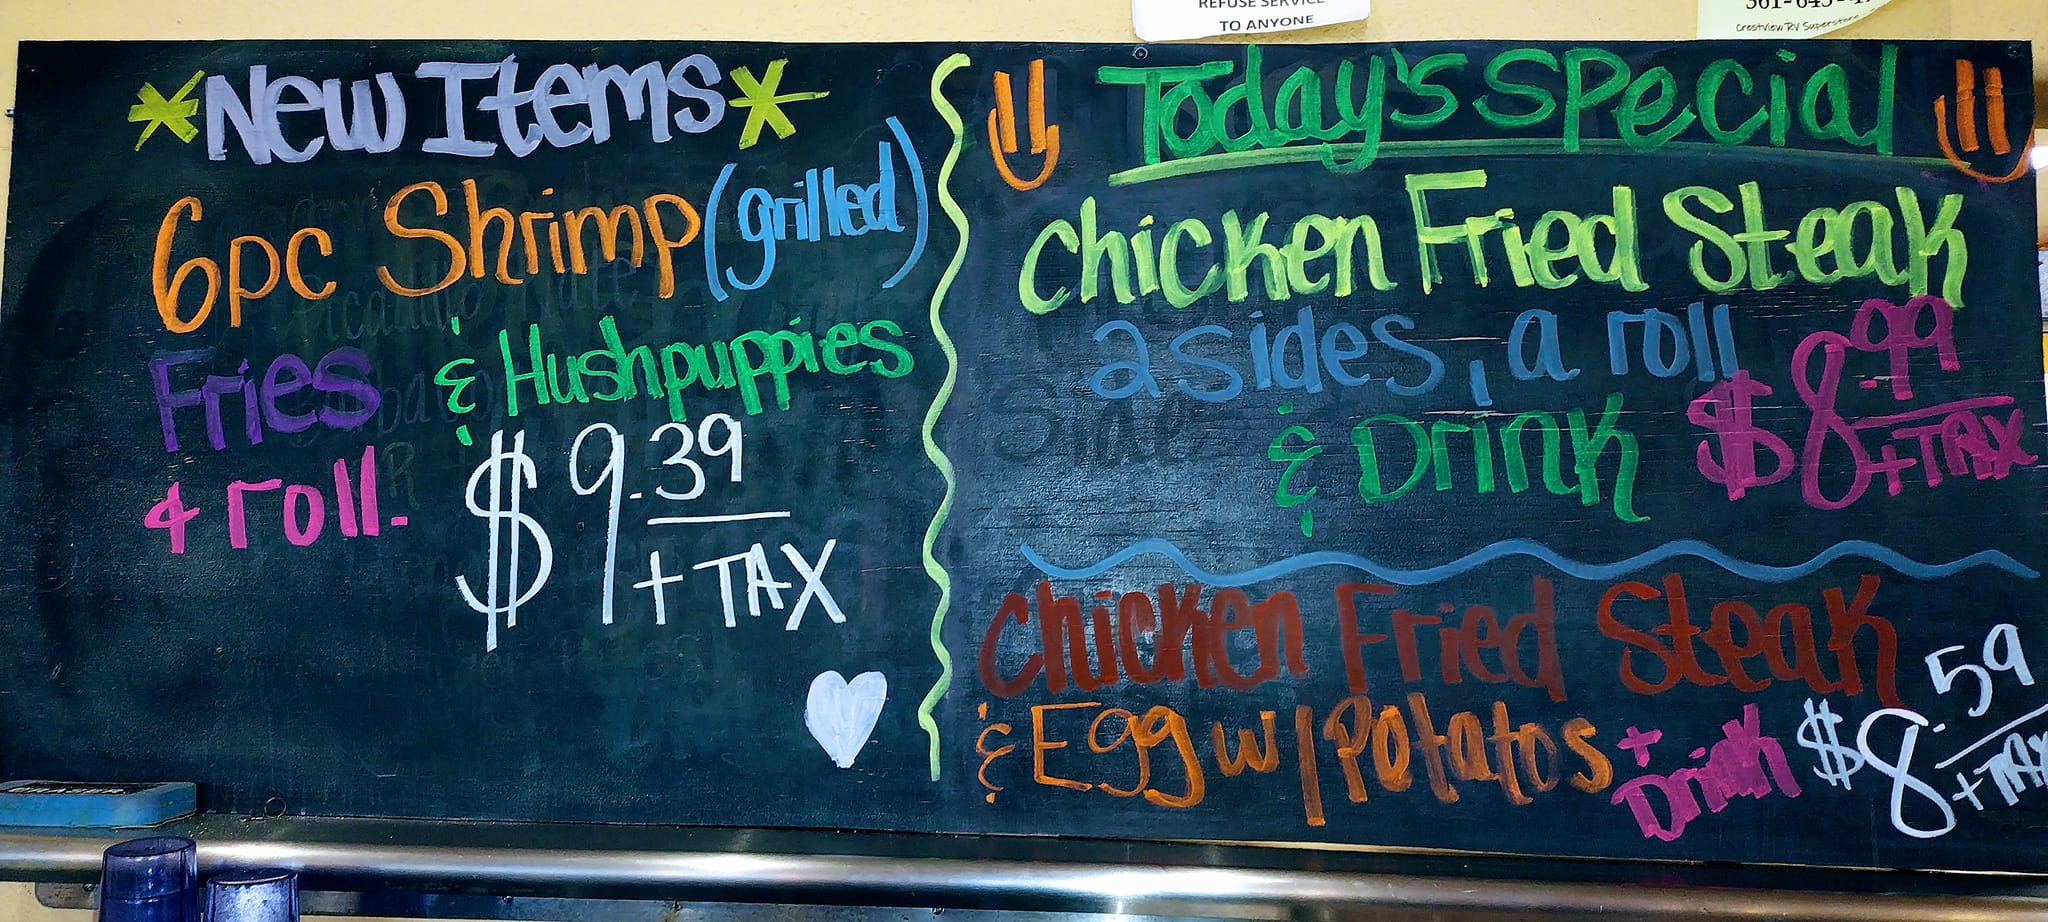 REFUSE SERVICE
TO ANYONE
Crestview RV Superstore
*New Items*
6pc Shrimp (grilled)
Fries & Hushpuppies
& roll. $9.39
+ TAX
Today's Special
Chicken Fried Steak
2 sides, a roll
& Drink $8.99
+ TAX
Chicken Fried Steak
& Egg w/ Potatos + Drink $8.59
+ TAX